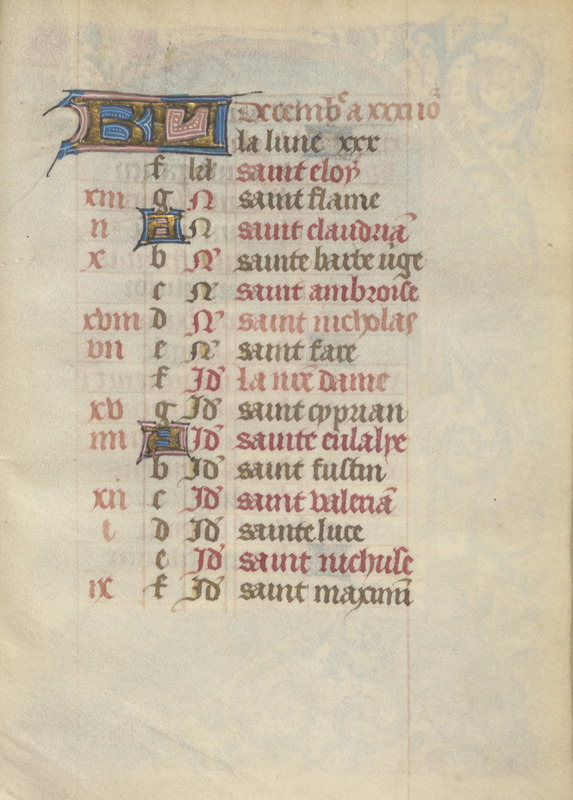 KL Decembre a xxxi io
la lune xxx
f kl saint eloy
xiii g N saint flame
ii A N saint claudriā
x b N sainte barbe vige
c N saint ambroise
xviii d N saint nicholas
vii e N saint fare
f Id la nre dame
xv g Id saint cyprian
iiii A Id sainte eulalye
b Id saint fustin
xii c Id saint valeriā
i d Id sainte luce
e Id saint nichuse
ix f Id saint maximi